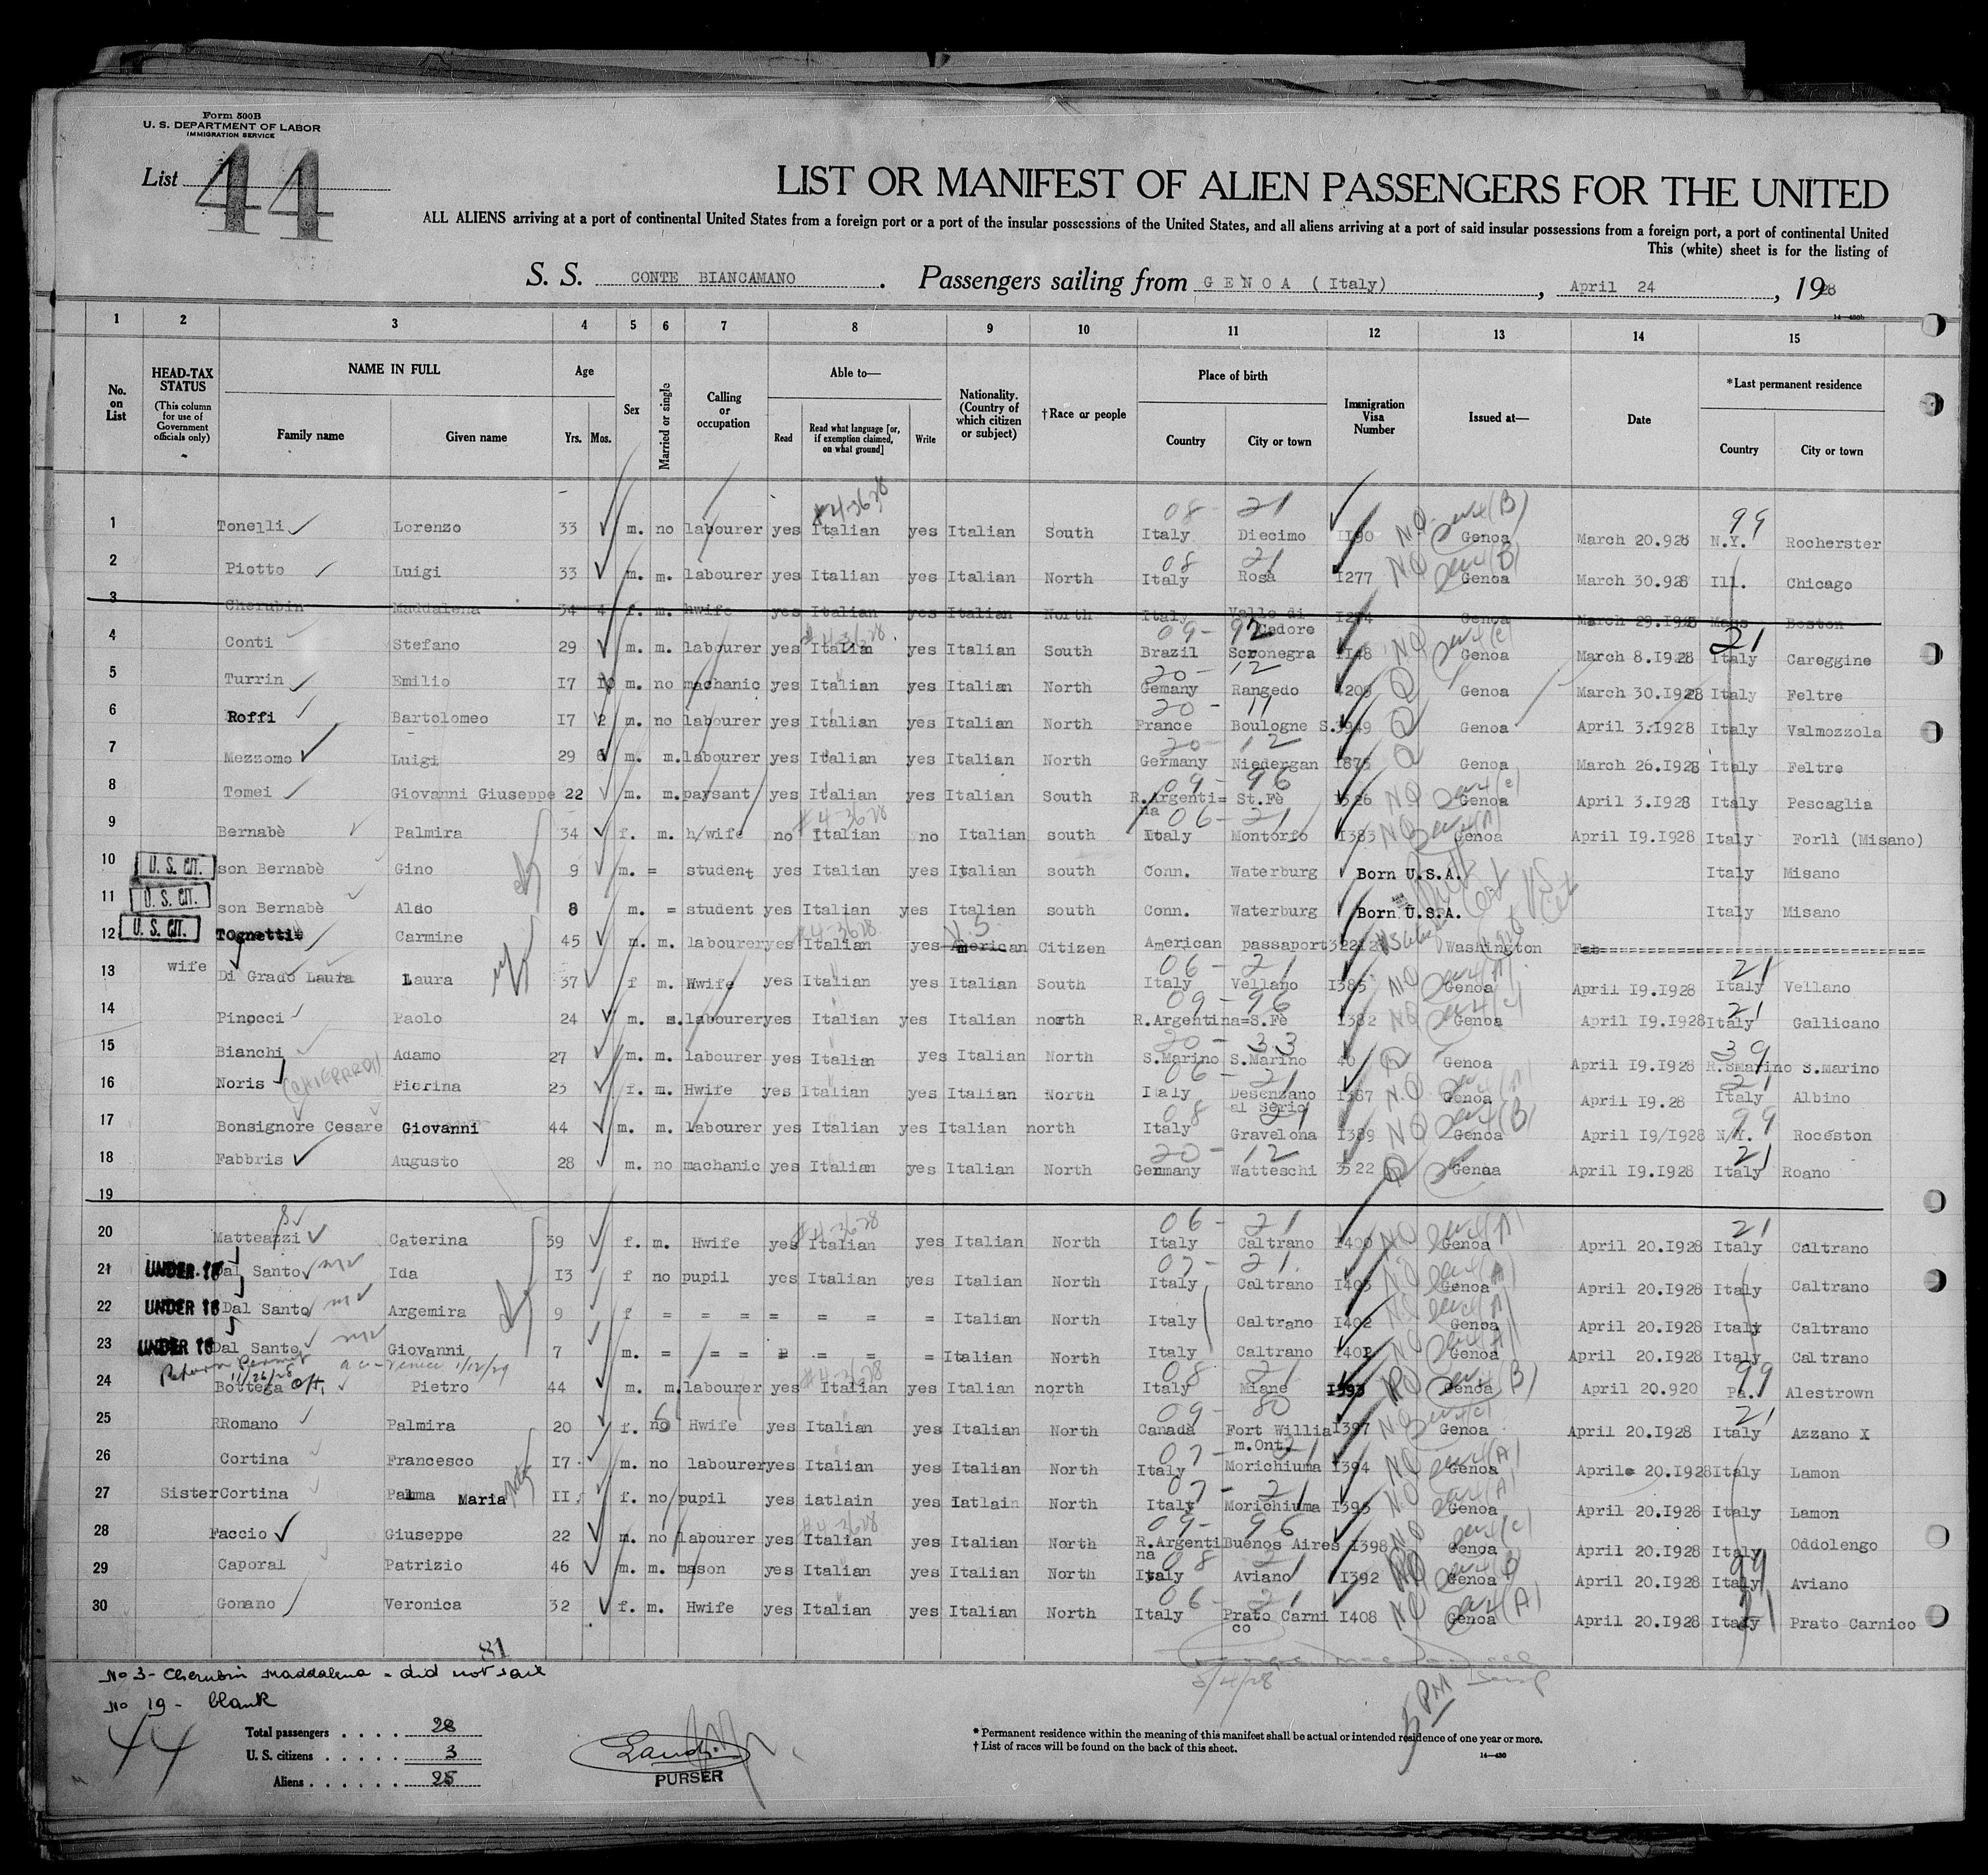 Form 500B
U. S. DEPARTMENT OF LABOR
IMMIGRATION SERVICE
List 44
LIST OR MANIFEST OF ALIEN PASSENGERS FOR THE UNITED
ALL ALIENS arriving at a port of continental United States from a foreign port or a port of the insular possessions of the United States, and all aliens arriving at a port of said insular possessions from a foreign port, a port of continental United
This (white) sheet is for the listing of
S. S. CONTE BIANCAMANO. Passengers sailing from GENOA (Italy), April 24, 1928
14—430b
1 2 3 4 5 6 7 8 9 10 11 12 13 14 15
No. on List
HEAD-TAX STATUS (This column for use of Government officials only)
NAME IN FULL Family name Given name
Age Yrs. Mos.
Sex
Married or single
Calling or occupation
Able to— Read Read what language [or, if exemption claimed, on what ground] Write
Nationality. (Country of which citizen or subject)
†Race or people
Place of birth Country City or town
Immigration Visa Number
Issued at—
Date
*Last permanent residence Country City or town
1 Tonelli Lorenzo 33 m. no labourer yes Italian yes Italian South Italy Diecimo 1190 Genoa March 20.928 N.Y. Rocherster
2 Piotto Luigi 33 m. m. labourer yes Italian yes Italian North Italy Rosà 1277 Genoa March 30.928 Ill. Chicago
3 Cherubin Maddalena 34 4 f. m. hwife yes Italian yes Italian North Italy Valle di Cadore 1274 Genoa March 29.1928 Mass Boston
4 Conti Stefano 29 m. m. labourer yes Italian yes Italian South Brazil 1148 Genoa March 8.1928 Italy Careggine
5 Turrin Emilio 17 10 m. no machanic yes Italian yes Italian North Gemany Rangedo Genoa March 30.1928 Italy Feltre
6 Roffi Bartolomeo 17 2 m. no labourer yes Italian yes Italian North France Boulogne S. Genoa April 3.1928 Italy Valmozzola
7 Mezzomo Luigi 29 6 m. m. labourer yes Italian yes Italian North Germany Niedergan Genoa March 26.1928 Italy Feltre
8 Tomei Giovanni Giuseppe 22 m. m. paysant yes Italian yes Italian South R.Argenti=na St.Fè 1326 Genoa April 3.1928 Italy Pescaglia
9 Bernabè Palmira 34 f. m. h/wife no Italian no Italian south Italy Montorfo 1383 Genoa April 19.1928 Italy Forlì (Misano)
10 U. S. CIT. son Bernabè Gino 9 m. = student yes Italian yes Italian south Conn. Waterburg Born U.S.A. Italy Misano
11 U. S. CIT. son Bernabè Aldo 8 m. = student yes Italian yes Italian south Conn. Waterburg Born U.S.A. Italy Misano
12 U. S. CIT. Tognetti Carmine 45 m. m. labourer yes Italian yes American U.S. Citizen American passaport Washington
13 wife Di Grado Laura Laura 37 f m. Hwife yes Italian yes Italian South Italy Vellano 1385 Genoa April 19.1928 Italy Vellano
14 Pinocci Paolo 24 m. s. labourer yes Italian yes Italian north R.Argentina=S.Fè 1382 Genoa April 19.1928 Italy Gallicano
15 Bianchi Adamo 27 m. m. labourer yes Italian yes Italian North S.Marino S.Marino 40 Genoa April 19.1928 R.Smarino S.Marino
16 Noris Pierina f. m. Hwife yes Italian yes Italian North Italy Desenzano al Serio 1387 Genoa April 19.28 Italy Albino
17 Bonsignore Cesare Giovanni 44 m. m. labourer yes Italian yes Italian north Italy Gravelona 1389 Genoa April 19/1928 N/Y. Roceston
18 Fabbris Augusto 28 m. no machanic yes Italian yes Italian North Germany Watteschi 3522 Genoa April 19.1928 Italy Roano
19
20 Matteazzi Caterina 39 f. m. Hwife yes Italian yes Italian North Italy Caltrano 1400 Genoa April 20.1928 Italy Caltrano
21 UNDER 16 Dal Santo Ida 13 f no pupil yes Italian yes Italian North Italy Caltrano 1403 Genoa April 20.1928 Italy Caltrano
22 UNDER 16 Dal Santo Argemira 9 f = = = = = = = Italian North Italy Caltrano 1402 Genoa April 20.1928 Italy Caltrano
23 UNDER 16 Dal Santo Giovanni 7 m. = = = = = = Italian North Italy Caltrano Genoa April 20.1928 Italy Caltrano
Return Permit 11/26/28
24 Bottega Pietro 44 m. m. labourer yes Italian yes Italian north Italy Miane 1393 Genoa April 20.920 Pa. Alestrown
25 RRomano Palmira 20 f. no Hwife yes Italian yes Italian North Canada Fort William.Ont. 1397 Genoa April 20.1928 Italy Azzano X
26 Cortina Francesco 17 m. no labourer yes Italian yes Italian North Italy Morichiuma 1394 Genoa April 20.1928 Italy Lamon
27 Sister Cortina Palma Maria 11 f. no pupil yes iatlain yes Iatlain North Italy Morichiuma 1395 Genoa April 20.1928 Italy Lamon
28 Faccio Giuseppe 22 m. no labourer yes Italian yes Italian North R.Argentina Buenos Aires 1398 Genoa April 20.1928 Italy Oddolengo
29 Caporal Patrizio 46 m. m. mason yes Italian yes Italian North Italy Aviano 1392 Genoa April 20.1928 Italy Aviano
30 Gonano Veronica 32 f. m. Hwife yes Italian yes Italian North Italy Prato Carnico 1408 Genoa April 20.1928 Italy Prato Carnico
81
No 3 - Cherubin Maddalena - did not sail
No 19 - blank
44
Total passengers . . . . 28
U. S. citizens . . . . . 3
Aliens . . . . . . 25
PURSER
5/4/28
5 PM
* Permanent residence within the meaning of this manifest shall be actual or intended residence of one year or more.
† List of races will be found on the back of this sheet.
14—430